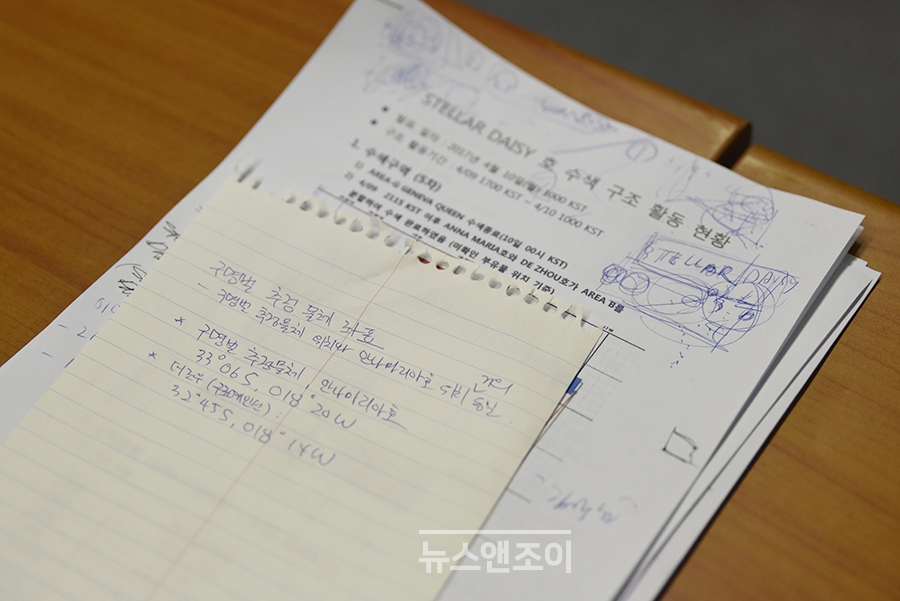 STELLAR DAISY 호 수색 구조 활동 현황
● 발표 일자 : 2017년 4월 10일(월) 1000 KST
● 구조 활동기간 : 4/09 1700 KST ~ 4/10 1000 KST
1. 수색구역 (5차)
1) AREA-G GENEVA QUEEN 수색종료(10일 00시 KST)
2) 4/09 2115 KST 이후 ANNA MARIA호와 DE ZHOU호가 AREA B를
분할하여 수색 완료하였음 (미확인 부유물 위치 기준)
STELLAR DAISY
구명벌 추정 물체 좌표
- 구명벌 추정물체 위치와 안나마리아호 위치 거의 동일
* 구명벌 추정물체, 안나마리아호
33°06S, 018°20W
* 더조우(구조예인선) :
32°45S, 018°14W
뉴스앤조이